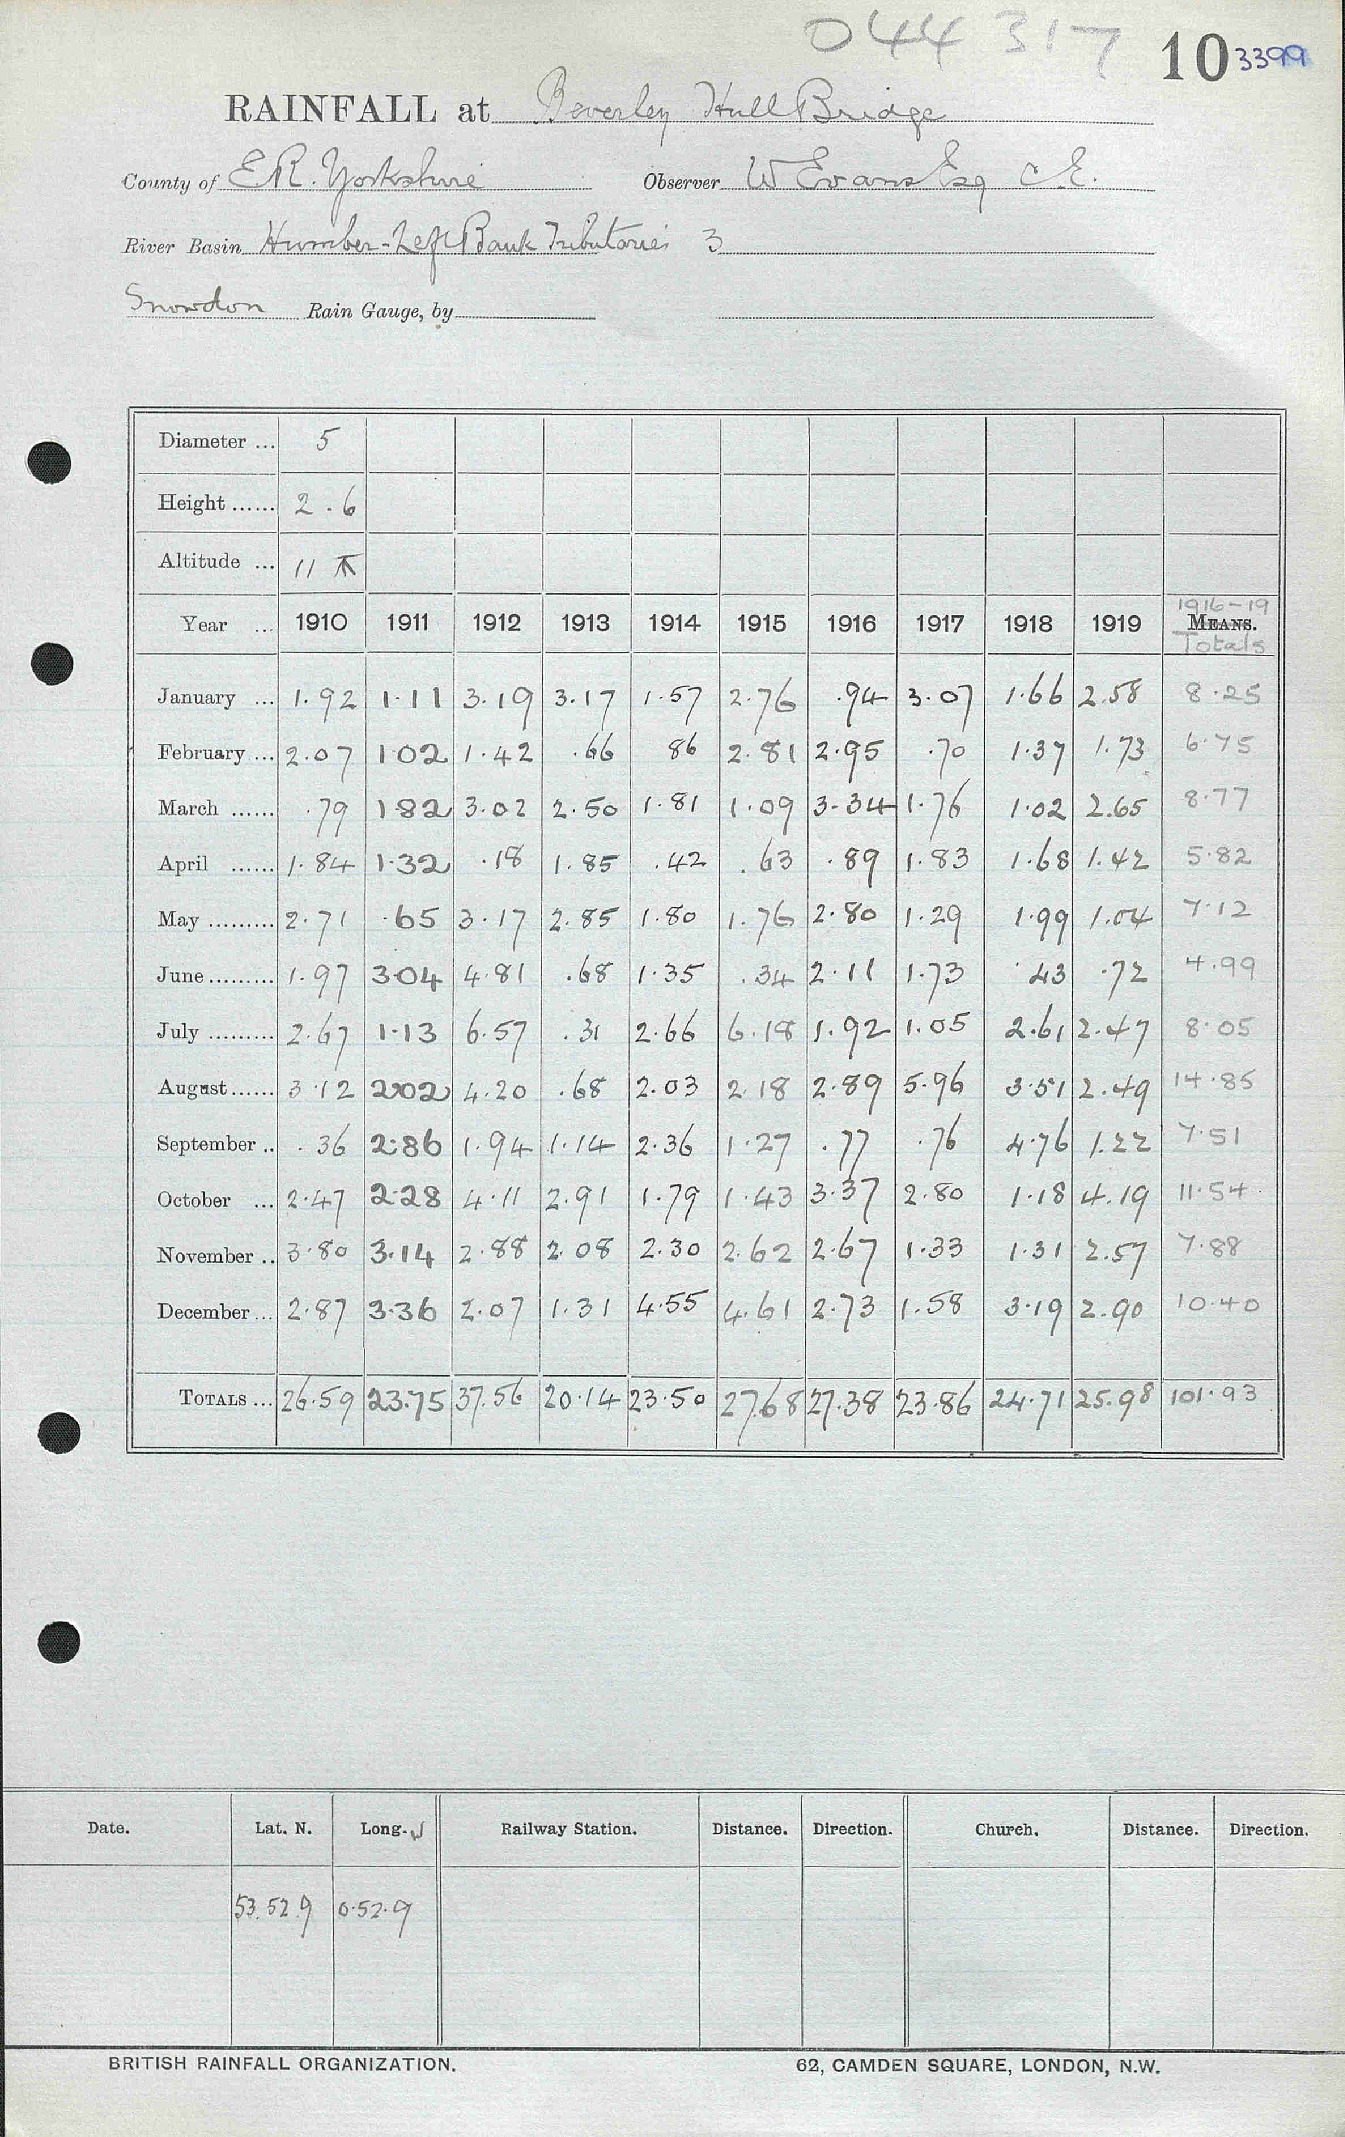 044 317 10 3399
RAINFALL at Beverley Hull Bridge
County of E.R. Yorkshire Observer W Evans Esq C.E.
River Basin Humber-Left Bank Tributaries 3
Snowdon Rain Gauge, by
Diameter ... 5
Height ...... 2.6
Altitude ... 11
1916-19
Year ... 1910 1911 1912 1913 1914 1915 1916 1917 1918 1919 MEANS.
Totals
January ... 1.92 1.11 3.19 3.17 1.57 2.76 .94 3.07 1.66 2.58 8.25
February ... 2.07 1 02 1.42 .66 86 2.81 2.95 .70 1.37 1.73 6.75
March ...... .79 1 82 3.02 2.50 1.81 1.09 3.34 1.76 1.02 2.65 8.77
April ...... 1.84 1.32 .18 1.85 .42 .63 .89 1.83 1.68 1.42 5.82
May ......... 2.71 .65 3.17 2.85 1.80 1.76 2.80 1.29 1.99 1.04 7.12
June ......... 1.97 3 04 4.81 .68 1.35 .34 2.11 1.73 .43 .72 4.99
July ......... 2.67 1.13 6.57 .31 2.66 6.18 1.92 1.05 2.61 2.47 8.05
August ...... 3.12 2.02 4.20 .68 2.03 2.18 2.89 5.96 3.51 2.49 14.85
September .. .36 2.86 1.94 1.14 2.36 1.27 .77 .76 4.76 1.22 7.51
October ... 2.47 2.28 4.11 2.91 1.79 1.43 3.37 2.80 1.18 4.19 11.54
November .. 3.80 3.14 2.88 2.08 2.30 2.62 2.67 1.33 1.31 2.57 7.88
December ... 2.87 3.36 2.07 1.31 4.55 4.61 2.73 1.58 3.19 2.90 10.40
TOTALS ... 26.59 23.75 37.56 20.14 23.50 27.68 27.38 23.86 24.71 25.98 101.93
Date. Lat. N. Long. W Railway Station. Distance. Direction. Church. Distance. Direction.
53.52.9 0.52.9
BRITISH RAINFALL ORGANIZATION. 62, CAMDEN SQUARE, LONDON, N.W.